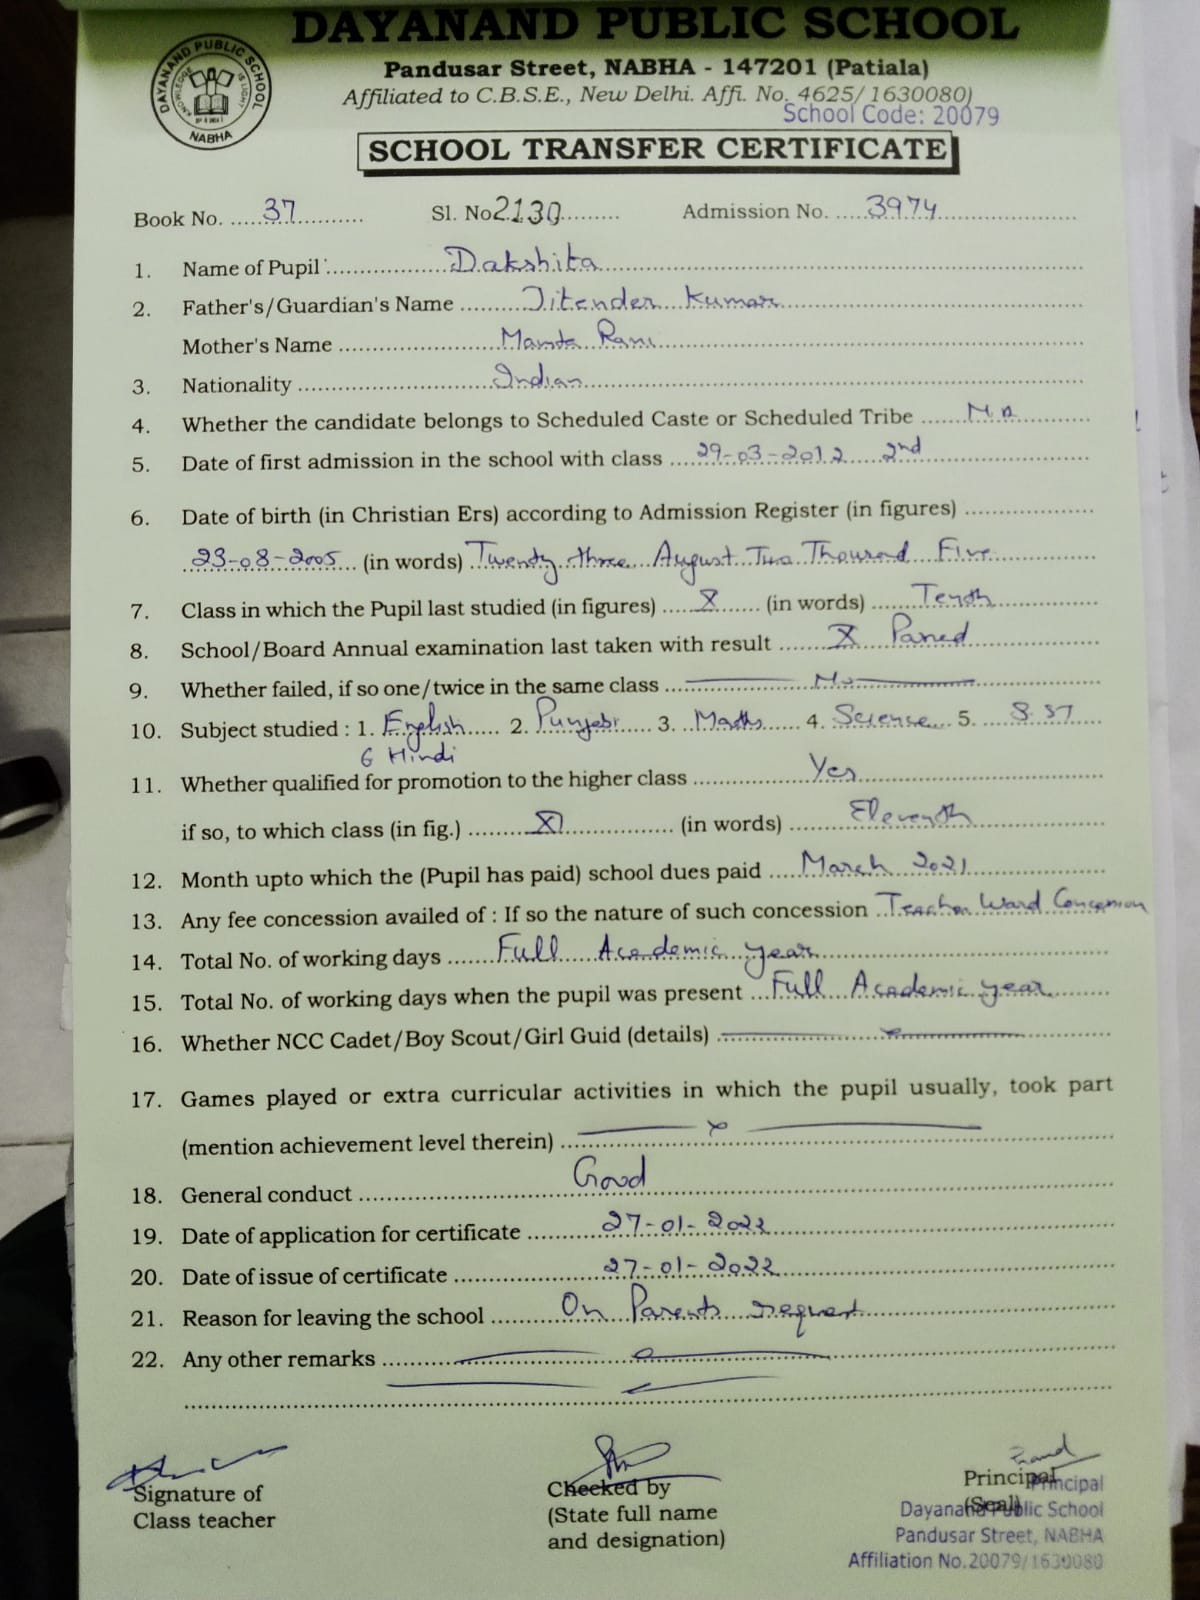 DAYANAND PUBLIC SCHOOL
DAYANAND PUBLIC SCHOOL
KNOWLEDGE IS LIGHT
NABHA
Pandusar Street, NABHA - 147201 (Patiala)
Affiliated to C.B.S.E., New Delhi. Affi. No. 4625/1630080)
School Code: 20079
SCHOOL TRANSFER CERTIFICATE
Book No. 37 Sl. No 2130 Admission No. 3974
1. Name of Pupil Dakshita
2. Father's/Guardian's Name Jitender Kumar
Mother's Name Mamta Rani
3. Nationality Indian
4. Whether the candidate belongs to Scheduled Caste or Scheduled Tribe
5. Date of first admission in the school with class 29-03-2012 2nd
6. Date of birth (in Christian Ers) according to Admission Register (in figures)
23-08-2005 (in words) Twenty three August Two Thousand Five
7. Class in which the Pupil last studied (in figures) X (in words) Tenth
8. School/Board Annual examination last taken with result X Passed
9. Whether failed, if so one/twice in the same class No
10. Subject studied : 1. English 2. Punjabi 3. Maths 4. Science 5. S.St
6 Hindi
11. Whether qualified for promotion to the higher class Yes
if so, to which class (in fig.) XI (in words) Eleventh
12. Month upto which the (Pupil has paid) school dues paid March 2021
13. Any fee concession availed of : If so the nature of such concession Teacher Ward Concession
14. Total No. of working days Full Academic year
15. Total No. of working days when the pupil was present Full Academic year
16. Whether NCC Cadet/Boy Scout/Girl Guid (details)
17. Games played or extra curricular activities in which the pupil usually, took part
(mention achievement level therein)
18. General conduct Good
19. Date of application for certificate 27-01-2022
20. Date of issue of certificate 27-01-2022
21. Reason for leaving the school On Parents request
22. Any other remarks
Signature of
Class teacher
Checked by
(State full name
and designation)
Principal
(Seal)
Principal
Dayanand Public School
Pandusar Street, NABHA
Affiliation No.20079/1630080